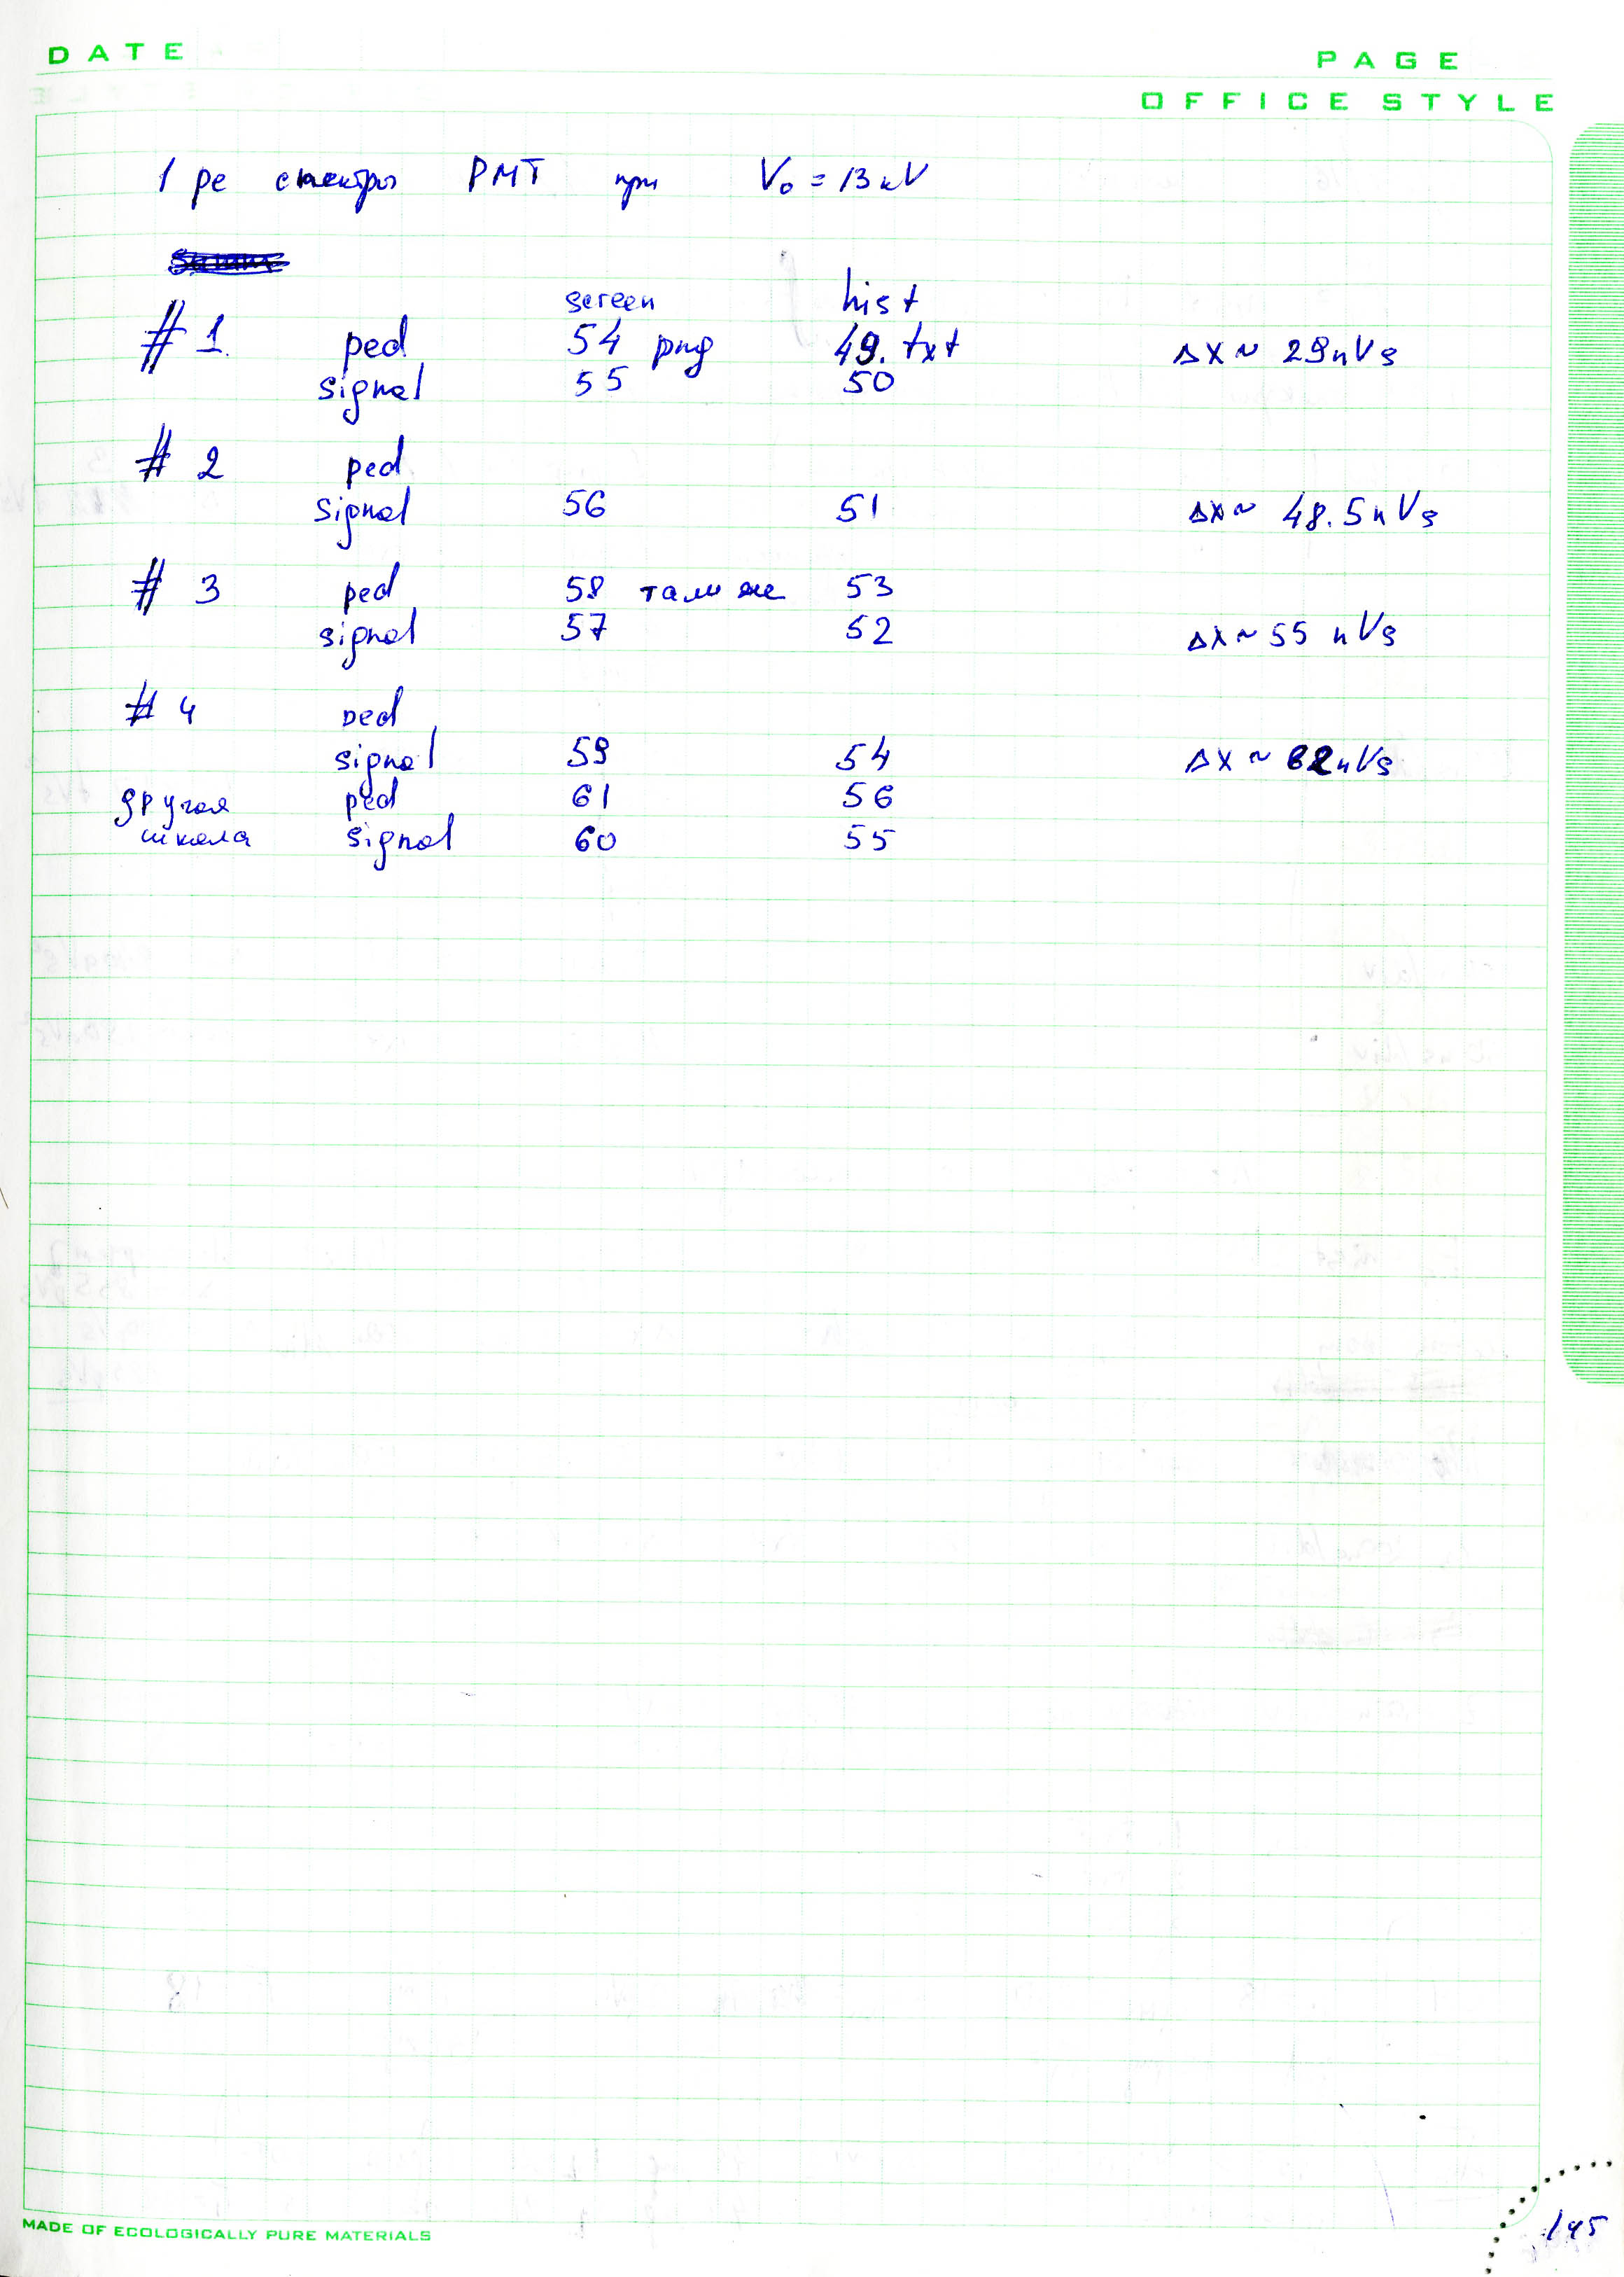 DATE
PAGE
OFFICE STYLE
1 pe спектры PMT при V₀ = 13 kV
screen hist
# 1 ped 54 png 49.txt ΔX ~ 29 nVs
signal 55 50
# 2 ped
signal 56 51 ΔX ~ 48.5 nVs
# 3 ped 58 там же 53
signal 57 52 ΔX ~ 55 nVs
# 4 ped
signal 59 54 ΔX ~ 62 nVs
другая ped 61 56
шкала signal 60 55
MADE OF ECOLOGICALLY PURE MATERIALS
145